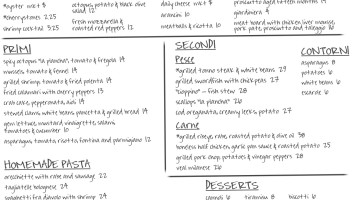 *oyster mkt $
*cherrystones 2.25
shrimp cocktail 3.25
octopus, potato & black olive
salad 12
fresh mozzarella &
roasted red peppers 12
daily cheese mkt $
arancini 10
meatballs & ricotta 10
prosciutto aged sixteen months 14
giardiniera 9
meat board with chicken liver mousse,
pork pate, prosciutto and taleggio 26
PRIMI
spicy octopus "a la plancha", tomato & fregola 19
mussels, tomato & fennel 19
grilled shrimp, tomato & fried polenta 19
fried calamari with cherry peppers 13
crab cake, pepperonata, aioli 19
steamed clams, white beans, pancetta & grilled bread 19
gem lettuces, mustard vinaigrette, salami,
tomatoes & cucumber 10
asparagus, tomato, ricotta, fontina and parmigiano 12
HOMEMADE PASTA
orecchiette with rabe and sausage 22
tagliatelle bolognese 24
spaghetti fra diavolo with shrimp 24
SECONDI
Pesce
*grilled tuna steak & white beans 29
grilled swordfish with chick peas 27
"cioppino" – fish stew 28
scallops "a la plancha" 26
cod oreganata, creamy leeks, potato 27
Carne
*grilled ribeye, rabe, roasted potato & olive oil 38
boneless half chicken, garlic pan sauce & roasted potato 25
grilled pork chop, potatoes & vinegar peppers 28
veal milanese 26
CONTORNI
asparagus 8
potatoes 6
white beans 6
escarole 6
DESSERTS
cannoli 6
tiramisu 8
biscotti 6